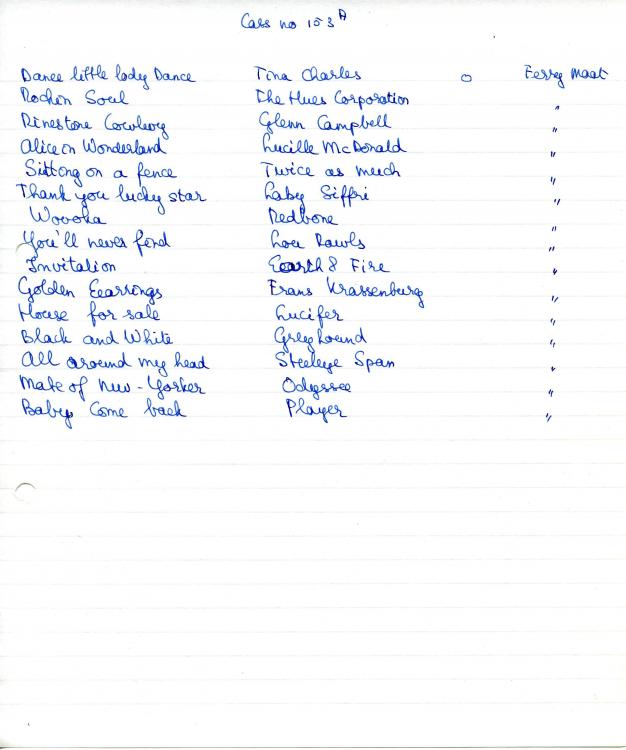 Cass no 153 A
Dance little lady Dance Tina Charles o Ferry Maat
Rockin Soul The Hues Corporation "
Rinestone Cowboy Glenn Campbell "
Alice in Wonderland Lucille McDonald "
Sitting on a fence Twice as much "
Thank you lucky star Laby Siffri "
Wovoka Redbone "
You'll never find Lou Rawls "
Invitation Eearth & Fire "
Golden Eearrings Frans Krassenburg "
House for sale Lucifer "
Black and White Greyhound "
All around my head Steeleye Span "
Mate of New-Yorker Odyssee "
Baby Come back Player "